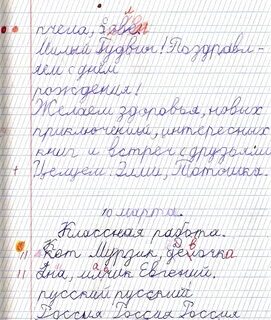 пчела,
Милый Будвин! Поздравл-
яем с днём
рождения!
Желаем здоровья, новых
приключений, интересных
книг и встреч с друзьями
Целуем. Элли, Тотошка.
10 марта.
Классная работа.
Кот Мурзик, девочка
Яна, мальчик Евгений.
русский русский
Россия Россия Россия